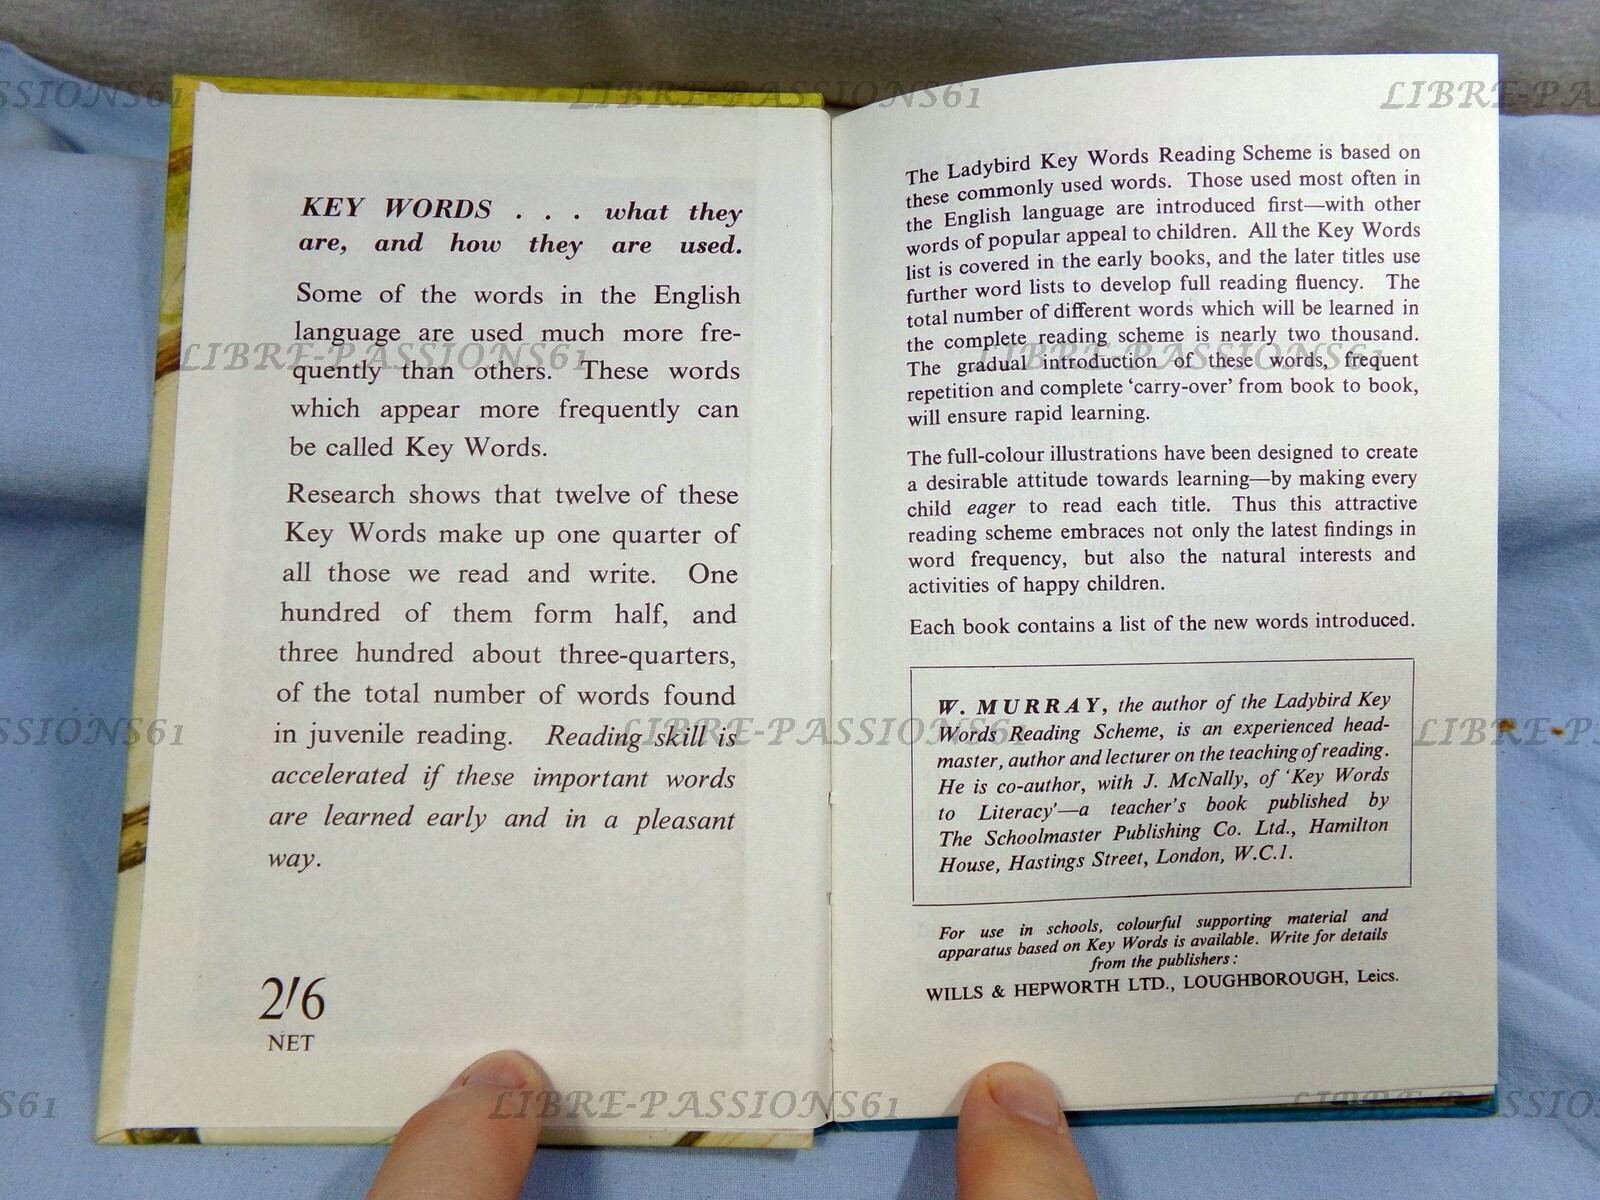 KEY WORDS . . . what they
are, and how they are used.
Some of the words in the English
language are used much more fre-
quently than others. These words
which appear more frequently can
be called Key Words.
Research shows that twelve of these
Key Words make up one quarter of
all those we read and write. One
hundred of them form half, and
three hundred about three-quarters,
of the total number of words found
in juvenile reading. Reading skill is
accelerated if these important words
are learned early and in a pleasant
way.
2/6
NET
The Ladybird Key Words Reading Scheme is based on
these commonly used words. Those used most often in
the English language are introduced first—with other
words of popular appeal to children. All the Key Words
list is covered in the early books, and the later titles use
further word lists to develop full reading fluency. The
total number of different words which will be learned in
the complete reading scheme is nearly two thousand.
The gradual introduction of these words, frequent
repetition and complete ‘carry-over’ from book to book,
will ensure rapid learning.
The full-colour illustrations have been designed to create
a desirable attitude towards learning—by making every
child eager to read each title. Thus this attractive
reading scheme embraces not only the latest findings in
word frequency, but also the natural interests and
activities of happy children.
Each book contains a list of the new words introduced.
W. MURRAY, the author of the Ladybird Key
Words Reading Scheme, is an experienced head-
master, author and lecturer on the teaching of reading.
He is co-author, with J. McNally, of ‘Key Words
to Literacy’—a teacher's book published by
The Schoolmaster Publishing Co. Ltd., Hamilton
House, Hastings Street, London, W.C.1.
For use in schools, colourful supporting material and
apparatus based on Key Words is available. Write for details
from the publishers:
WILLS & HEPWORTH LTD., LOUGHBOROUGH, Leics.
SSIONS61
LIBRE-PASSIONS61
LIBRE-PA
LIBRE-PASSIONS61
LIBRE-PASSIONS61
SSIONS61
LIBRE-PASSIONS61
LIBRE-P
S61
LIBRE-PASSIONS61
LIBRE-PASSIO